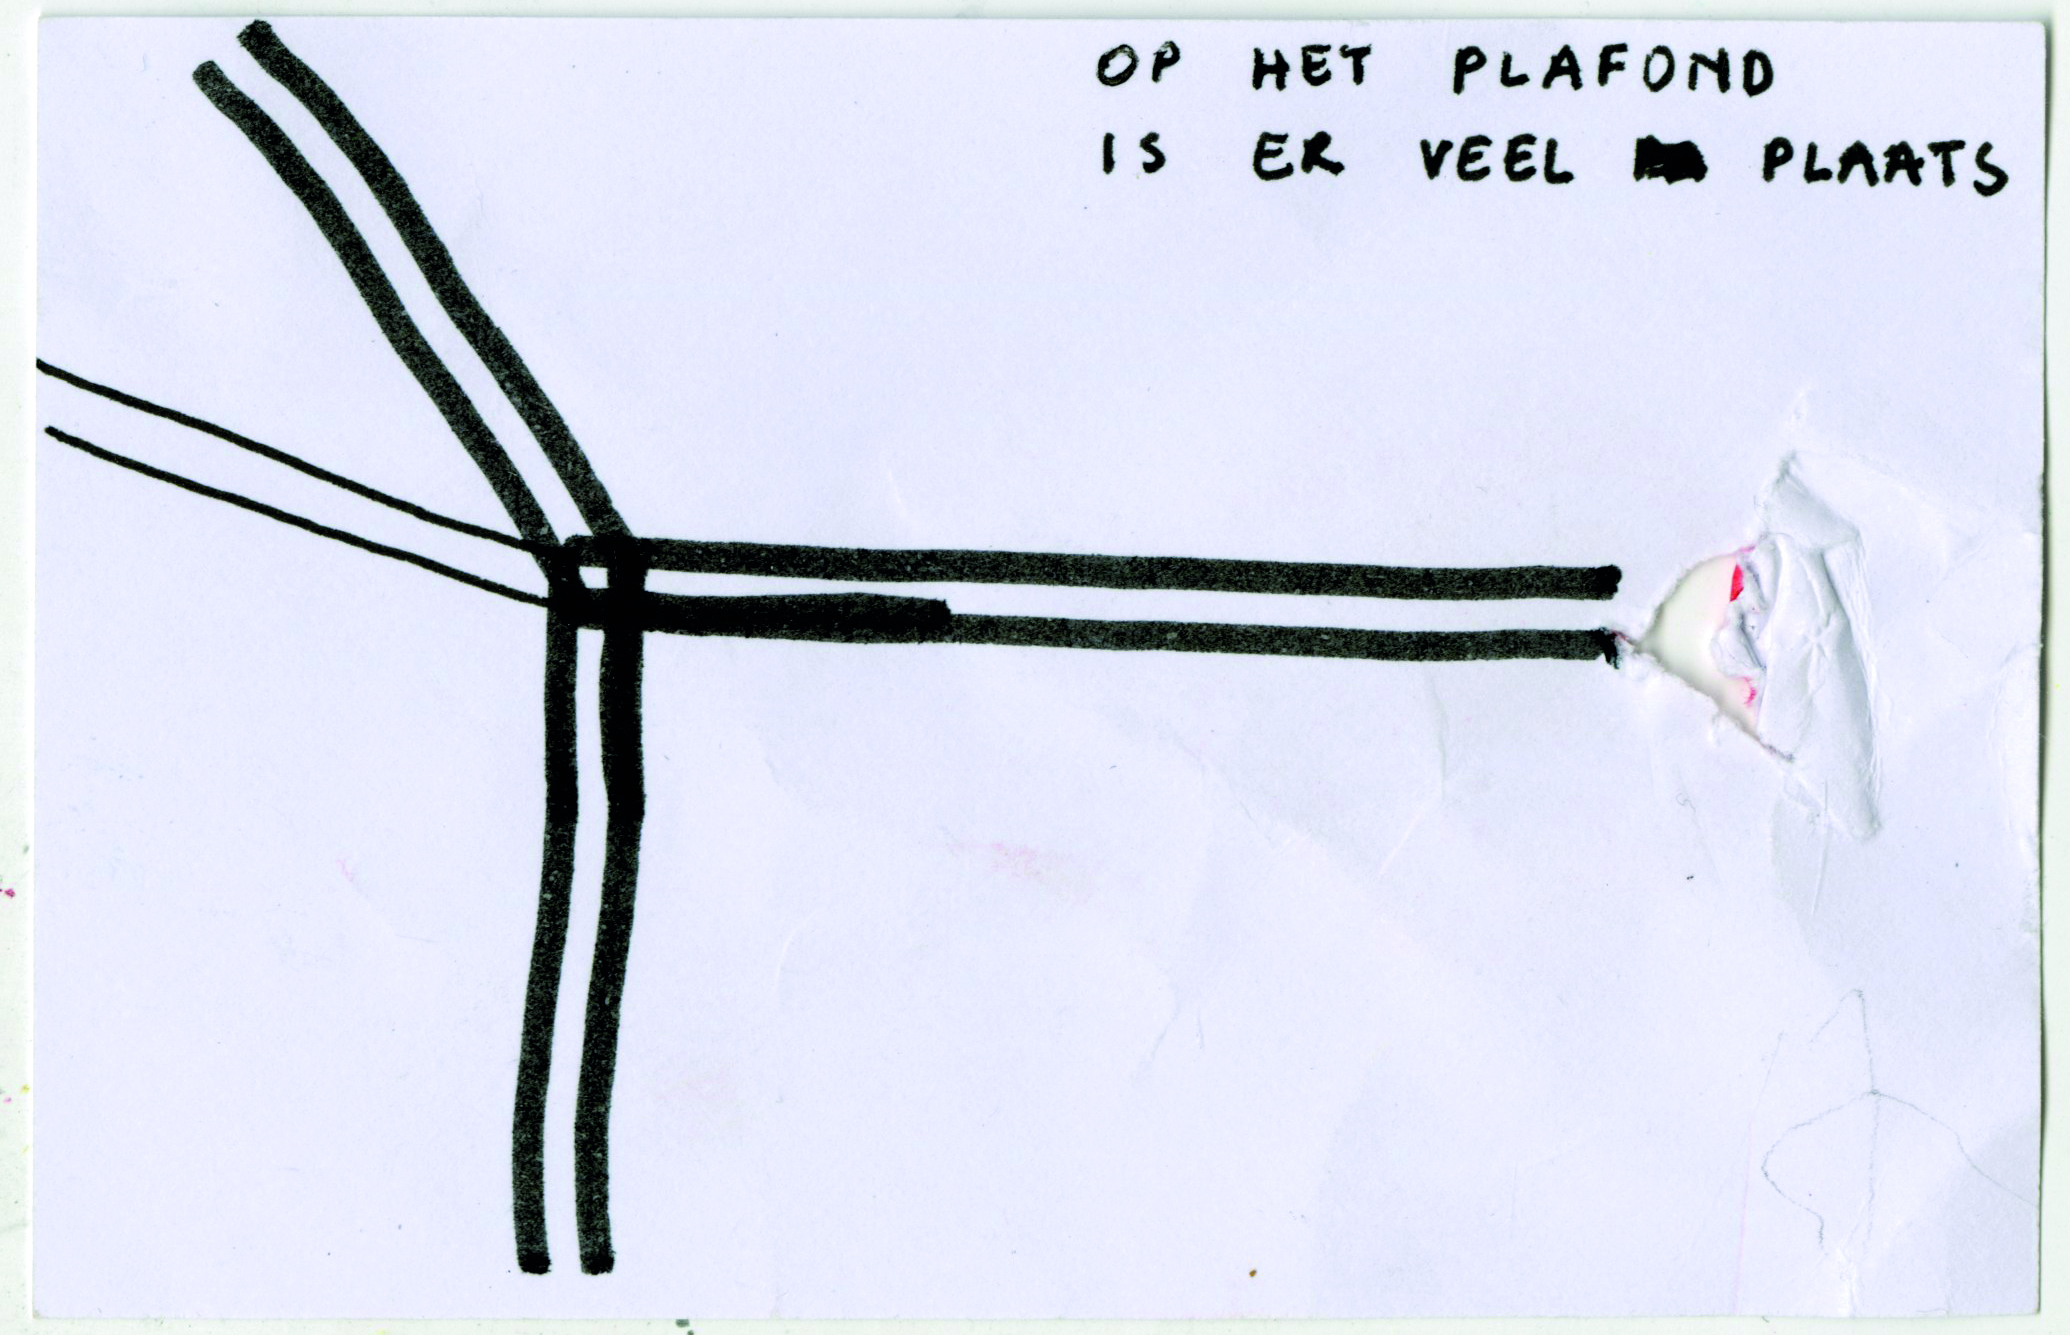 OP HET PLAFOND
IS ER VEEL PLAATS